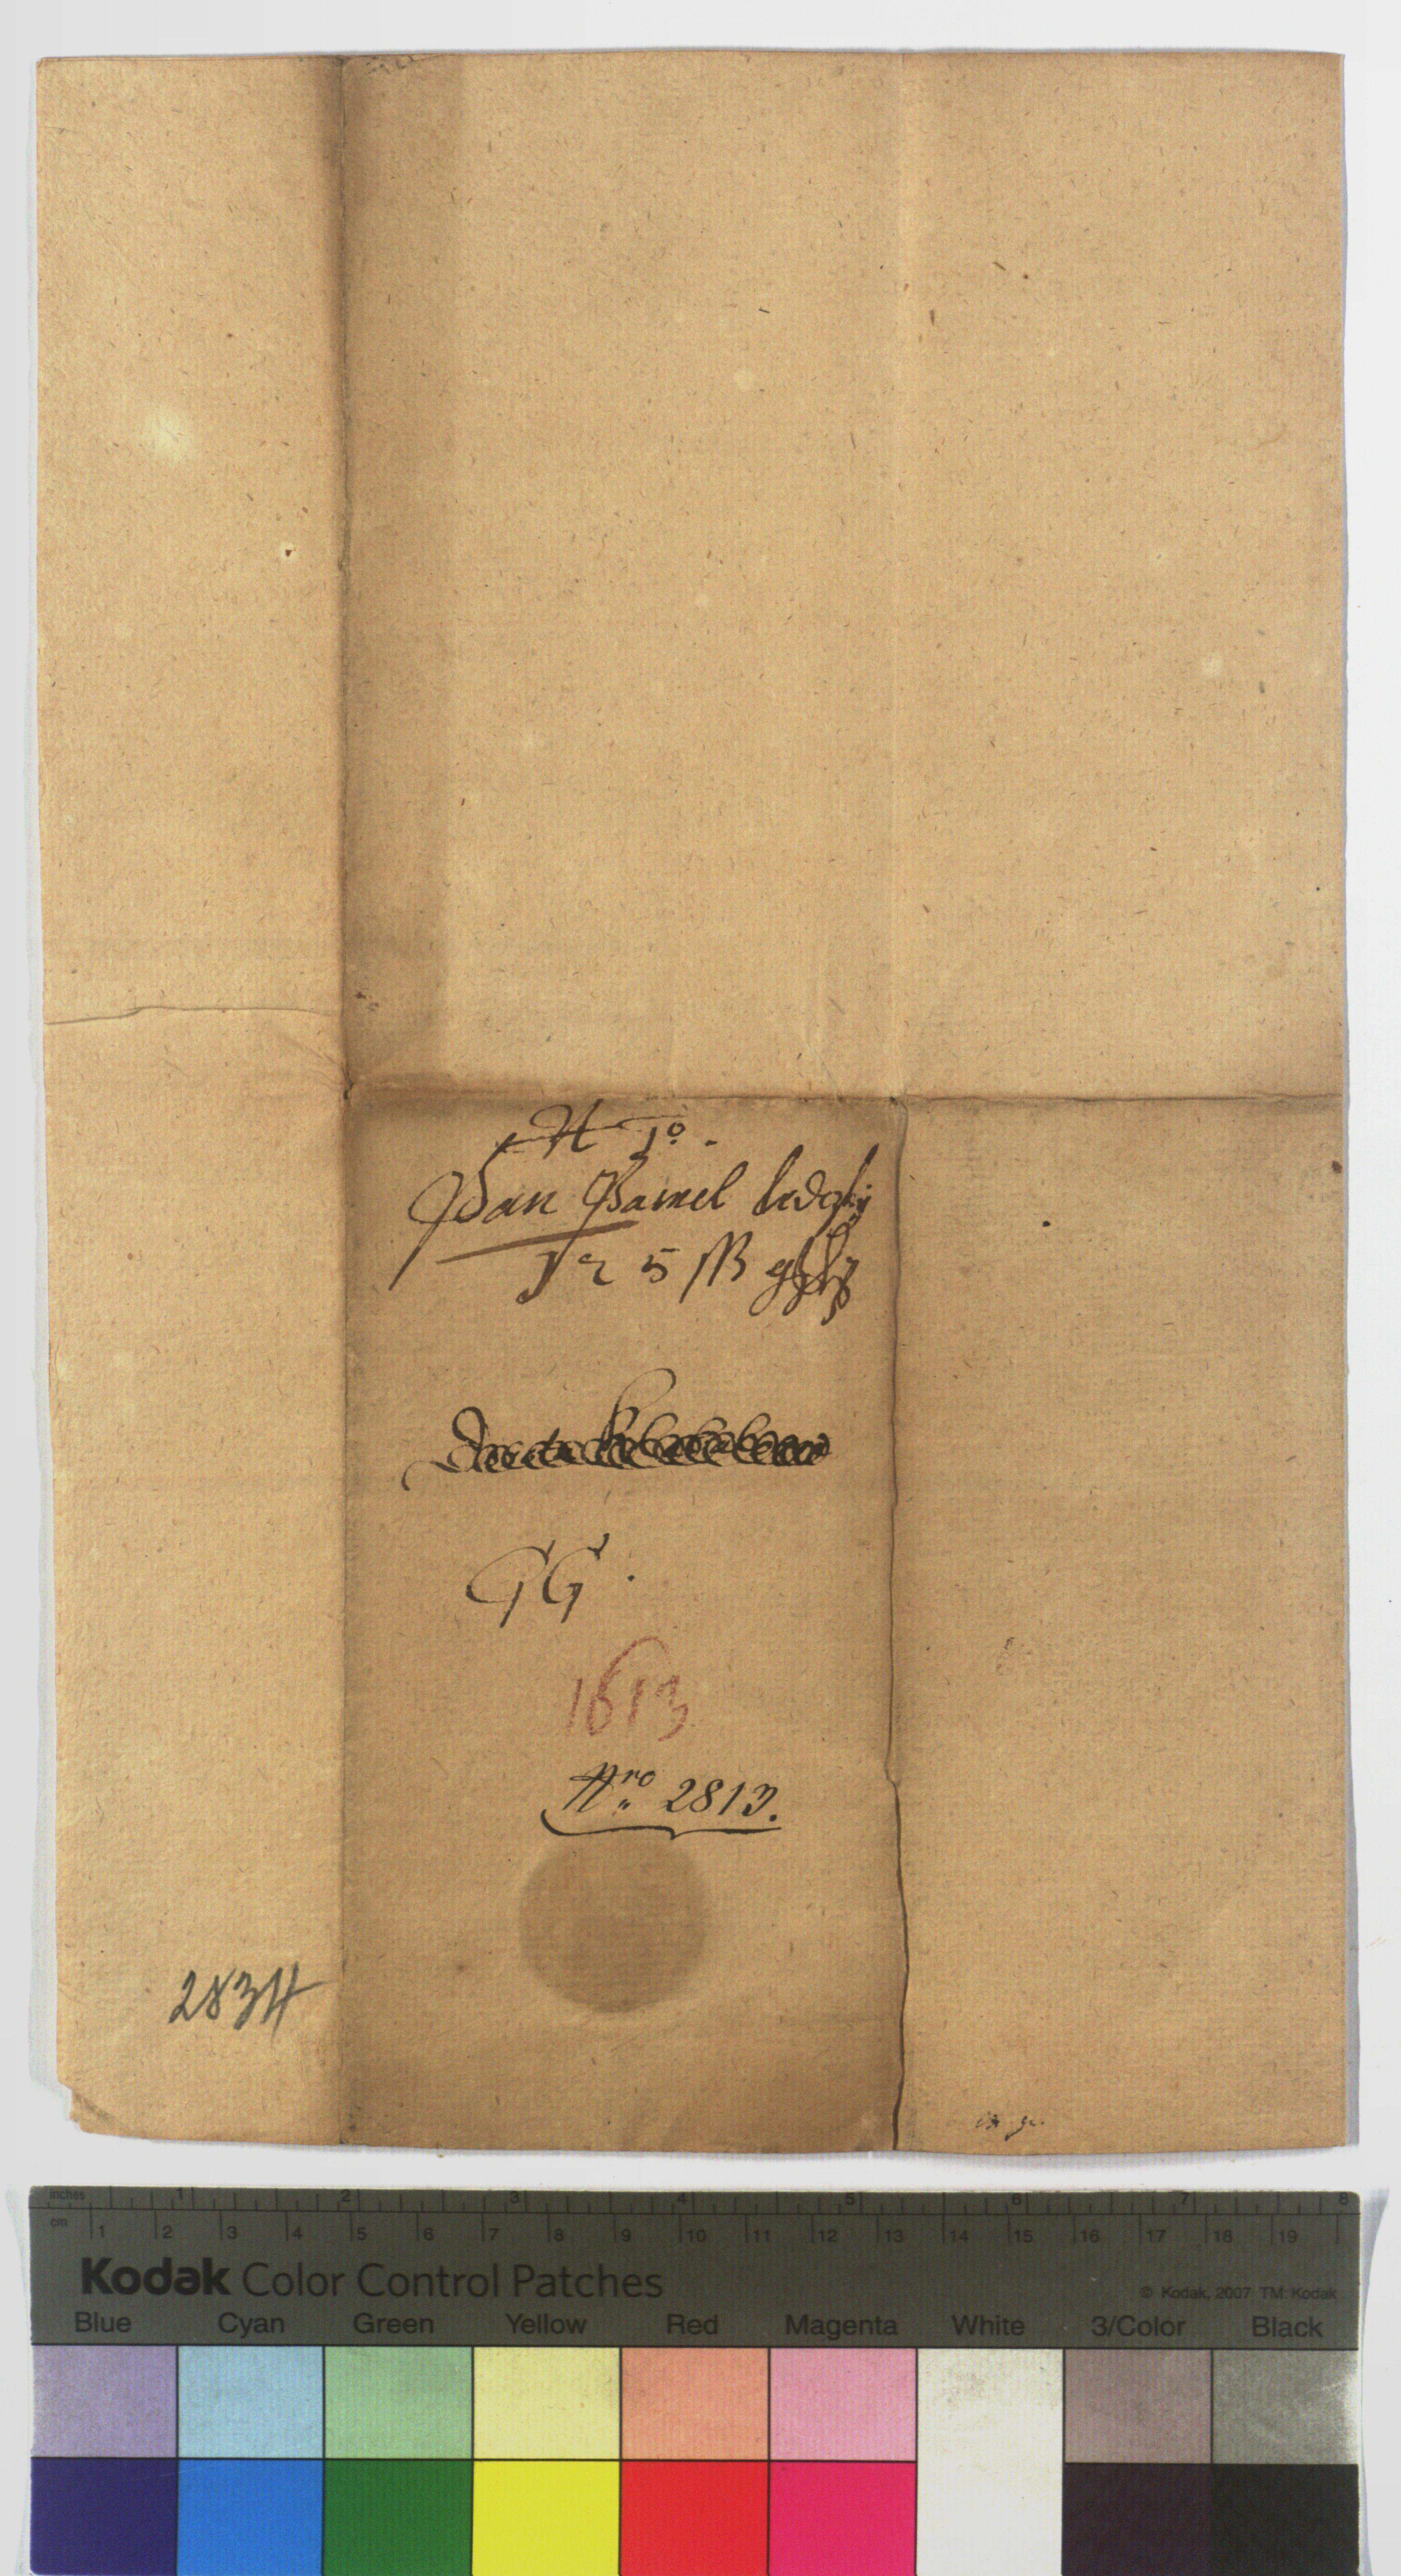 N 10.
Pan Pawel
5
GG.
1613
Nro 2813.
2834
inches 1 2 3 4 5 6 7 8
cm 1 2 3 4 5 6 7 8 9 10 11 12 13 14 15 16 17 18 19
Kodak Color Control Patches
© Kodak, 2007 TM: Kodak
Blue Cyan Green Yellow Red Magenta White 3/Color Black